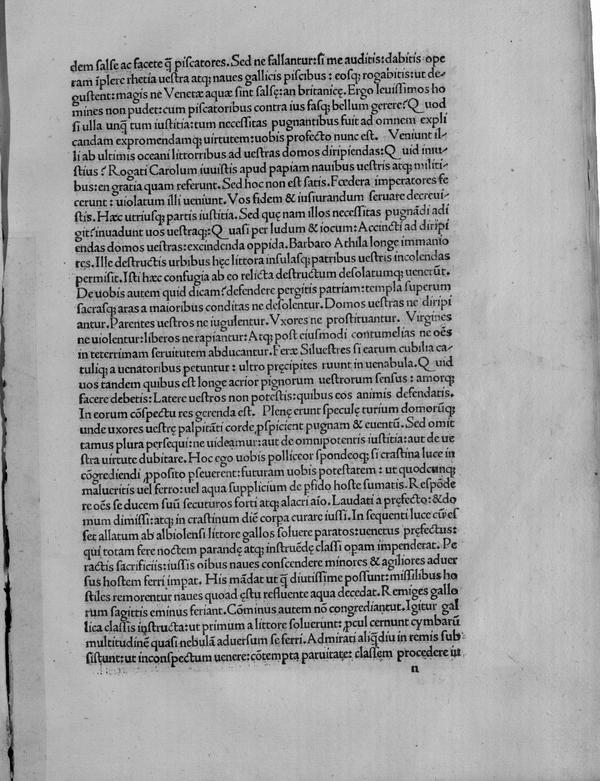 dem salse ac facete q̃ piscatores. Sed ne fallantur: si me auditis: dabitis ope
ram ĩplere rhetia uestra atq; naues gallicis piscibus: eosq; rogabitis: ut de-
gustent: magis ne Venetæ aquæ sint salsę: an britanicę. Ergo leuissimos ho
mines non pudet: cum piscatoribus contra ius fasq; bellum gerere? Quod
si ulla unq̃ tum iustitia: tum necessitas pugnantibus fuit ad omnem expli
candam expromendamq; uirtutem: uobis profecto nunc est. Veniunt il-
li ab ultimis oceani littorribus ad uestras domos diripiendas: Quid iniu-
stius? Rogati Carolum iuuistis apud papiam nauibus uestris atq; militi-
bus: en gratia quam referunt. Sed hoc non est satis. Fœdera imperatores fe
cerunt: uiolatum illi ueniunt. Vos fidem & iusiurandum seruare decreui-
stis. Hæc utriusq; partis iustitia. Sed quę nam illos necessitas pugnãdi adi
git? inuadunt uos uestraq;: Quasi per ludum & iocum: Accincti ad diripi
endas domos uestras: excindenda oppida. Barbaro Athila longe immanio
res. Ille destructis urbibus hęc littora insulasq; patribus uestris incolendas
permisit. Isti hæc confugia ab eo relicta destructum desolatumq; uenerũt.
De uobis autem quid dicam? defendere pergitis patriam: templa superum
sacrasq; aras a maioribus conditas ne desolentur. Domos uestras ne diripi
antur. Parentes uestros ne iugulentur. Vxores ne prostituantur. Virgines
ne uiolentur: liberos ne rapiantur: Atq; post eiusmodi contumelias ne oẽs
in teterrimam seruitutem abducantur. Feræ Siluestres si earum cubilia ca-
tuliq; a uenatoribus petuntur: ultro pręcipites ruunt in uenabula. Quid
uos tandem quibus est longe acrior pignorum uestrorum sensus: amorq;
facere debetis: Latere uestros non potestis: quibus eos animis defendatis.
In eorum cõspectu res gerenda est. Plenę erunt speculę turium domorũq;
unde uxores uestrę palpitãti corde, pspicient pugnam & euentũ. Sed omit
tamus plura persequi: ne uideamur: aut de omnipotentis iustitia: aut de ue
stra uirtute dubitare. Hoc ego uobis polliceor spondeoq; si crastina luce in
cõgrediendi pposito pseuerent: futuram uobis potestatem: ut quodcunq;
malueritis uel ferro: uel aqua supplicium de pfido hoste sumatis. Respõde
re oẽs se ducem suũ secuturos forti atq; alacri aĩo. Laudati a pręfecto: & do
mum dimissi: atq; in crastinum diẽ corpa curare iussi. In sequenti luce cũ es
set allatum ab albiolensi littore gallos soluere paratos: uenetus pręfectus:
qui totam fere noctem parandę atq; instruẽdę classi opam impenderat. Pe
ractis sacrificiis: iussis oibus naues conscendere minores & agiliores aduer
sus hostem ferri impat. His mãdat ut q̃ diutissime possunt: missilibus ho
stiles remorentur naues quoad ęstu refluente aqua decedat. Remiges gallo
rum sagittis eminus feriant. Cõminus autem nõ congrediantut. Igitur gal
lica classis instructa: ut primum a littore soluerunt: pcul cernunt cymbarũ
multitudinẽ quasi nebulã aduersum se ferri. Admirati aliq̃diu in remis sub
sistunt: ut inconspectum uenere: cõtempta paruitate: classem procedere iu
n